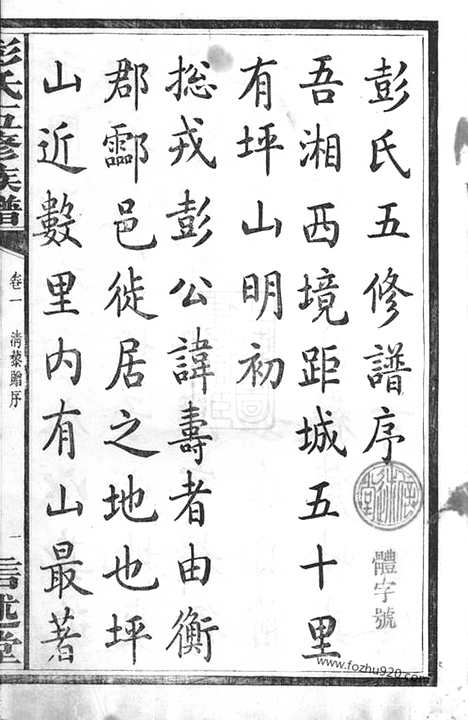 彭氏五修譜序
吾湘西境距城五十里
有坪山明初
總戎彭公諱壽者由衡
郡酃邑徙居之地也坪
山近數里内有山最著
彭氏五修族譜
卷一
清黎贈序
一
信述堂
體字號
www.fozhu920.com